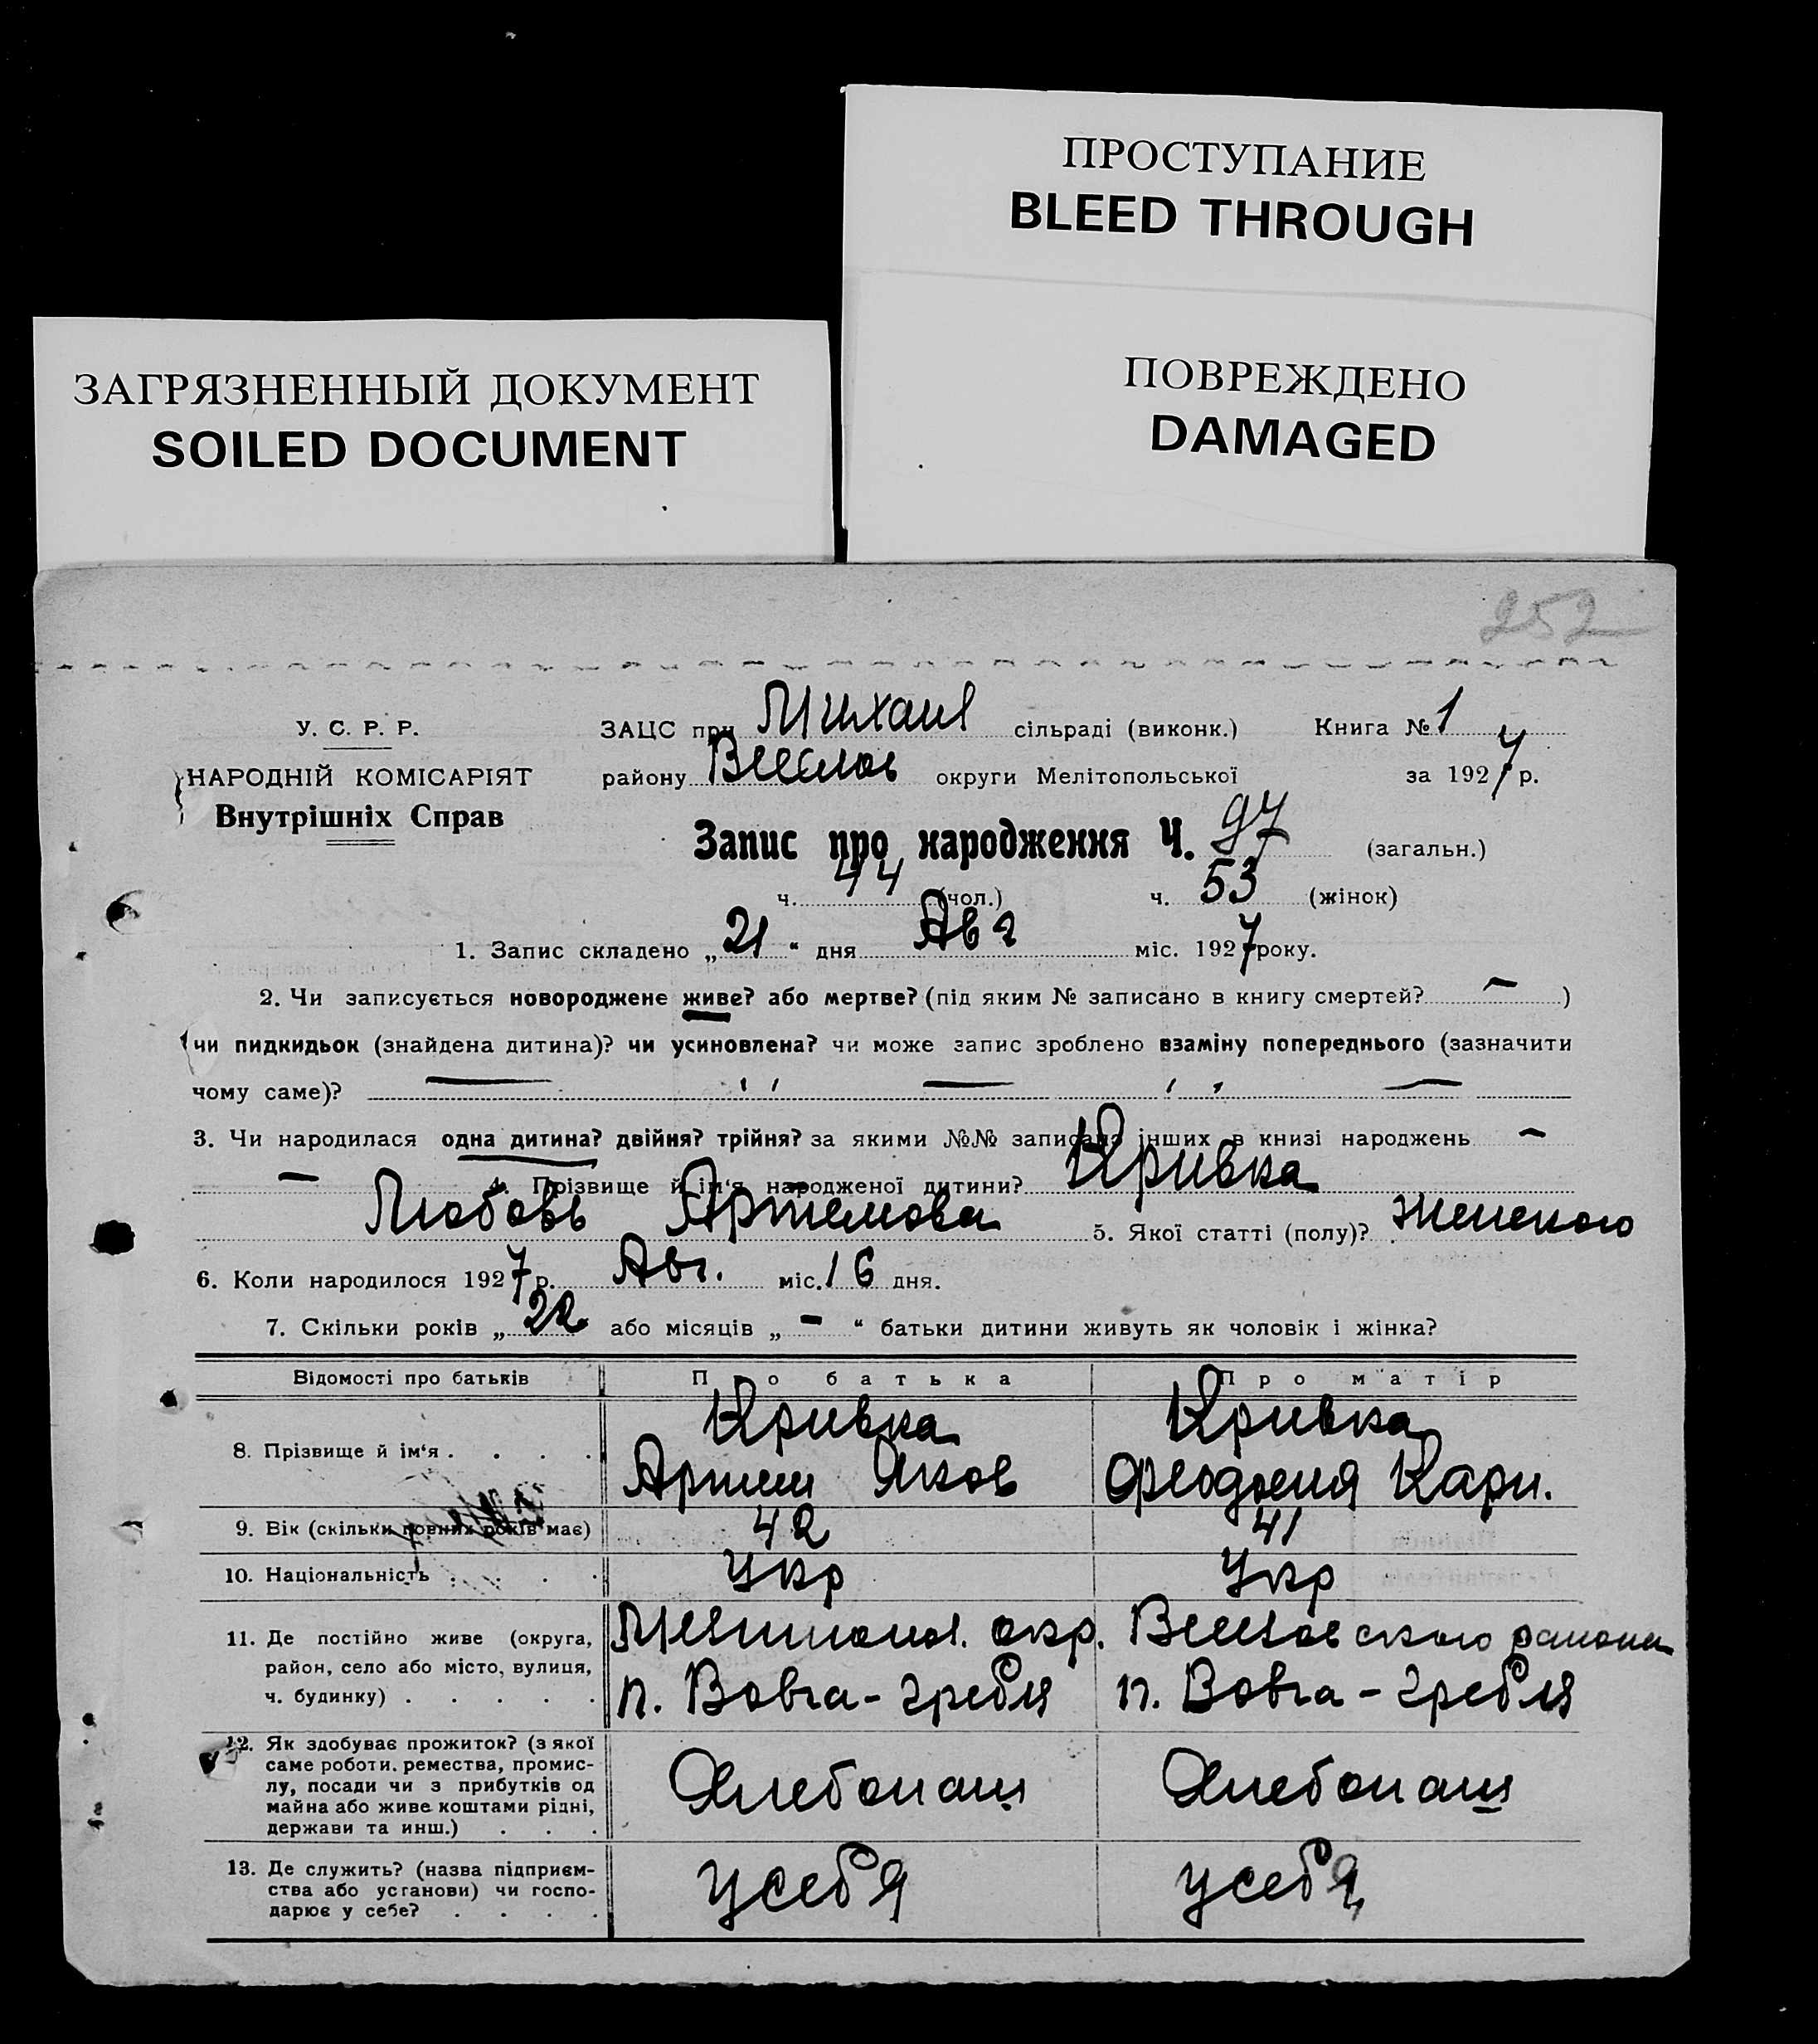 ПРОСТУПАНИЕ
BLEED THROUGH
ПОВРЕЖДЕНО
DAMAGED
ЗАГРЯЗНЕННЫЙ ДОКУМЕНТ
SOILED DOCUMENT
252
У. С. Р. Р. ЗАЦС при Михайл сільраді (виконк.) Книга № 1
НАРОДНІЙ КОМІСАРІЯТ району Веселов округи Мелітопольської за 1927 р.
Внутрішніх Справ
Запис про народження Ч. 97 (загальн.)
ч. 44 (чол.) ч. 53 (жінок)
1. Запис складено „21“ дня Авг міс. 1927 року.
2. Чи записується новороджене живе? або мертве? (під яким № записано в книгу смертей? — )
чи пидкидьок (знайдена дитина)? чи усиновлена? чи може запис зроблено взаміну попереднього (зазначити
чому саме)? — ' ' — ' ' —
3. Чи народилася одна дитина? двійня? трійня? за якими №№ записано інших в книзі народжень —
— 4. Прізвище й ім‘я народженої дитини? Кривка
Любовь Артемова 5. Якої статті (полу)? Женского
6. Коли народилося 1927 р. Авг. міс. 16 дня.
7. Скільки років „22 або місяців „ — “ батьки дитини живуть як чоловік і жінка?
Відомості про батьків Про батька Про матір
8. Прізвище й ім‘я . . . . Кривка Кривка
Артем Яков Феодосия Карп.
9. Вік (скільки повних років має) 42 41
10. Національність . . . . Укр Укр
11. Де постійно живе (округа, Мелитопол. окр. Веселовского района
район, село або місто, вулиця,
ч. будинку) . . . . . п. Вовча-гребля п. Вовча-гребля
12. Як здобуває прожиток? (з якої
саме роботи. ремества, промис-
лу, посади чи з прибутків од
майна або живе коштами рідні,
держави та инш.) . . . Хлебопаш Хлебопаш
13. Де служить? (назва підприєм-
ства або установи) чи госпо-
дарює у себе? . . . . У себя У себя